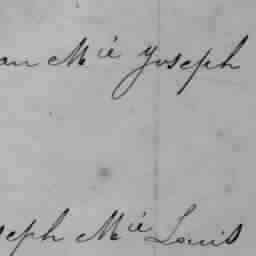 an Mie Joseph
seph Mie Louis